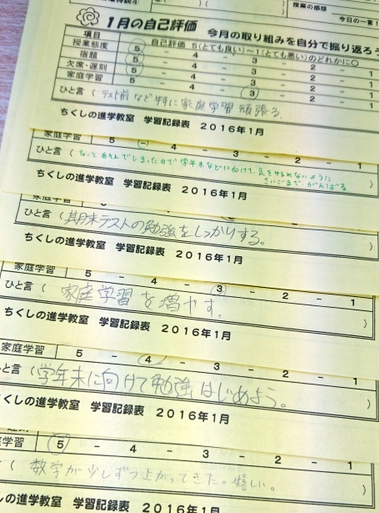 1月の自己評価 今月の取り組みを自分で振り返ろう
項目 自己評価 5(とても良い)~1(とても悪い)のどれかに○
授業態度 5 - 4 - 3 - 2 - 1
宿題 5 - 4 - 3 - 2 - 1
欠席・遅刻 5 - 4 - 3 - 2 - 1
家庭学習 5 - 4 - 3 - 2 - 1
ひと言 ( テスト前など特に家庭学習頑張る。
ちくしの進学教室 学習記録表 2016年1月
家庭学習 5 - 4 - 3 - 2 - 1
ひと言 (
ちくしの進学教室 学習記録表 2016年1月
ひと言 (期末テストの勉強をしっかりする。 )
ちくしの進学教室 学習記録表 2016年1月
家庭学習 5 - 4 - 3 - 2 - 1
ひと言 ( 家庭学習を増やす。 )
ちくしの進学教室 学習記録表 2016年1月
家庭学習 5 - 4 - 3 - 2 - 1
ひと言 (学年末に向けて勉強はじめよう。 )
ちくしの進学教室 学習記録表 2016年1月
家庭学習 5 - 4 - 3 - 2 - 1
( 数学が少しずつ上がってきた。嬉しい。 )
ちくしの進学教室 学習記録表 2016年1月